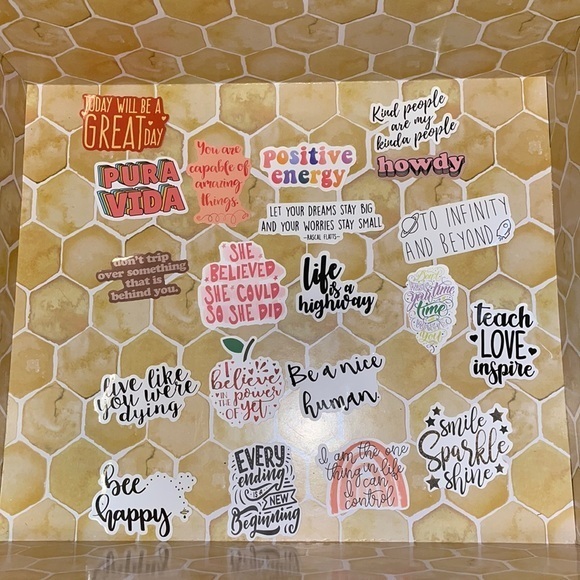 TODAY WILL BE A
GREAT DAY
PURA
VIDA
You are
capable of
amazing
things.
positive
energy
Kind people
are my
kinda people
howdy
LET YOUR DREAMS STAY BIG
AND YOUR WORRIES STAY SMALL
-RASCAL FLATTS-
TO INFINITY
AND BEYOND
don't trip
over something
that is
behind you.
SHE
BELIEVED
SHE COULD
SO SHE DID
life
is a
highway
Don't
your time
time
you
teach
LOVE
inspire
live like
you were
dying
I
believe
IN THE power
OF yet.
Be a nice
human.
smile
Sparkle
shine
bee
happy
EVERY
ending
IS A NEW
Beginning
I am the one
thing in life
I can
control